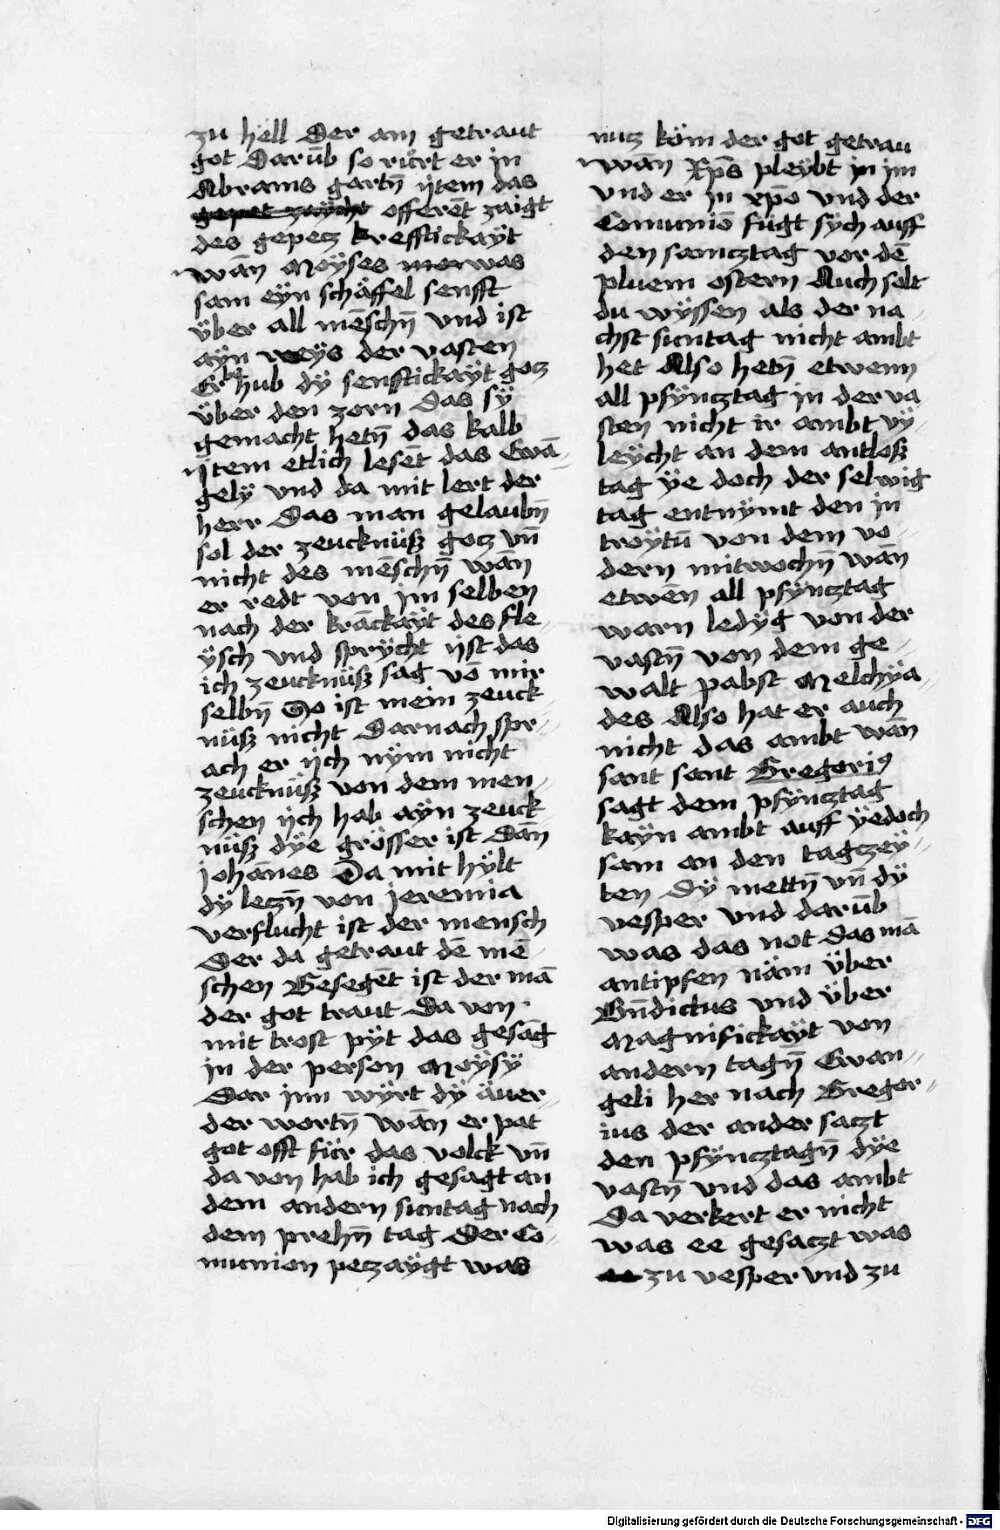 zu hëll Der am getraut
got Darūb so rürt er in
Abrams gartñ ÿtem das
gepet zaÿcht offerēt zaigt
des gepetz krefftickaÿt
wān Moÿses was
sam eÿn schäffel senfft
über all mēschñ vnd ist
aÿn weÿs der vasten
Er hub dÿ senfftickaÿt gotz
über den zorn Das sÿ
gemacht hetñ das kalb
ÿtem etlich lesēt das Ewā-
gelÿ vnd da mit lert der
herr Das man gelaubñ
sol der zeucknüß gotz vñ
nicht des mēschñ wān
er redt von jm selben
nach der krāckaÿt des fle-
ÿsch vnd sprÿcht ÿst das
ich zeucknüß sag vō mir
selbñ So ist mein zeuck-
nüß nicht Darnach spr-
ach er ÿch nÿm nicht
zeucknüß von dem men-
schen ÿch hab aÿn zeuck-
nüß dÿe grösser ist Dān
johānes Da mit hÿlt
dÿ letzñ von jeremia
verflucht ist der mensch
Der da getraut dē mē-
schen Gesegēt ist der mā
der got traut Da von
mit trost pÿt das gesāg
in der person Moÿsÿ
Dar jnn wÿrt dÿ äuer-
der wortñ wān er pat
got offt für das volck vñ
da von hab ich gesagt an
dem andern suntag nach
dem prehñ tag Der Co-
munion petzaÿgt was
nutz köm der got getrau
wan xp̄s pleÿbt in im
vnd er in xp̄o vnd der
Comuniō fügt sÿch auff
den samtztag vor dē
pluem ostern Auch solt
du wÿssen als der na-
chst suntag nicht ambt
het Also hetñ etwenn
all pfÿntztag in der va
sten nicht ir ambt vÿ-
leÿcht an dem antloß
tag ÿe doch der selwig
tag entnÿmt den in
troÿtū von dem vo-
dern mitwochñ wān
etwēn all pfÿntztag
warn ledÿg von der
vastñ von dem ge-
walt pabst Melchÿa-
des Also hat er auch
nicht das ambt wān
sant sant Gregoriꝰ
sagt dem pfÿntztag
kaÿn ambt auff ÿedoch
sam an den tagtzeÿ-
ten Dÿ mettñ vñ dÿ
vesper vnd darūb
was das not das mā
antipfen näm über
Bñdictus vnd über
Magnifickaÿt von
andern tagñ Ewan-
geli her nach Gregor-
ius der ander satzt
den pfÿntztagñ dÿe
vastñ vnd das ambt
Da verkert er nicht
was ee gesatzt was
zu vesper vnd zu
Digitalisierung gefördert durch die Deutsche Forschungsgemeinschaft - DFG